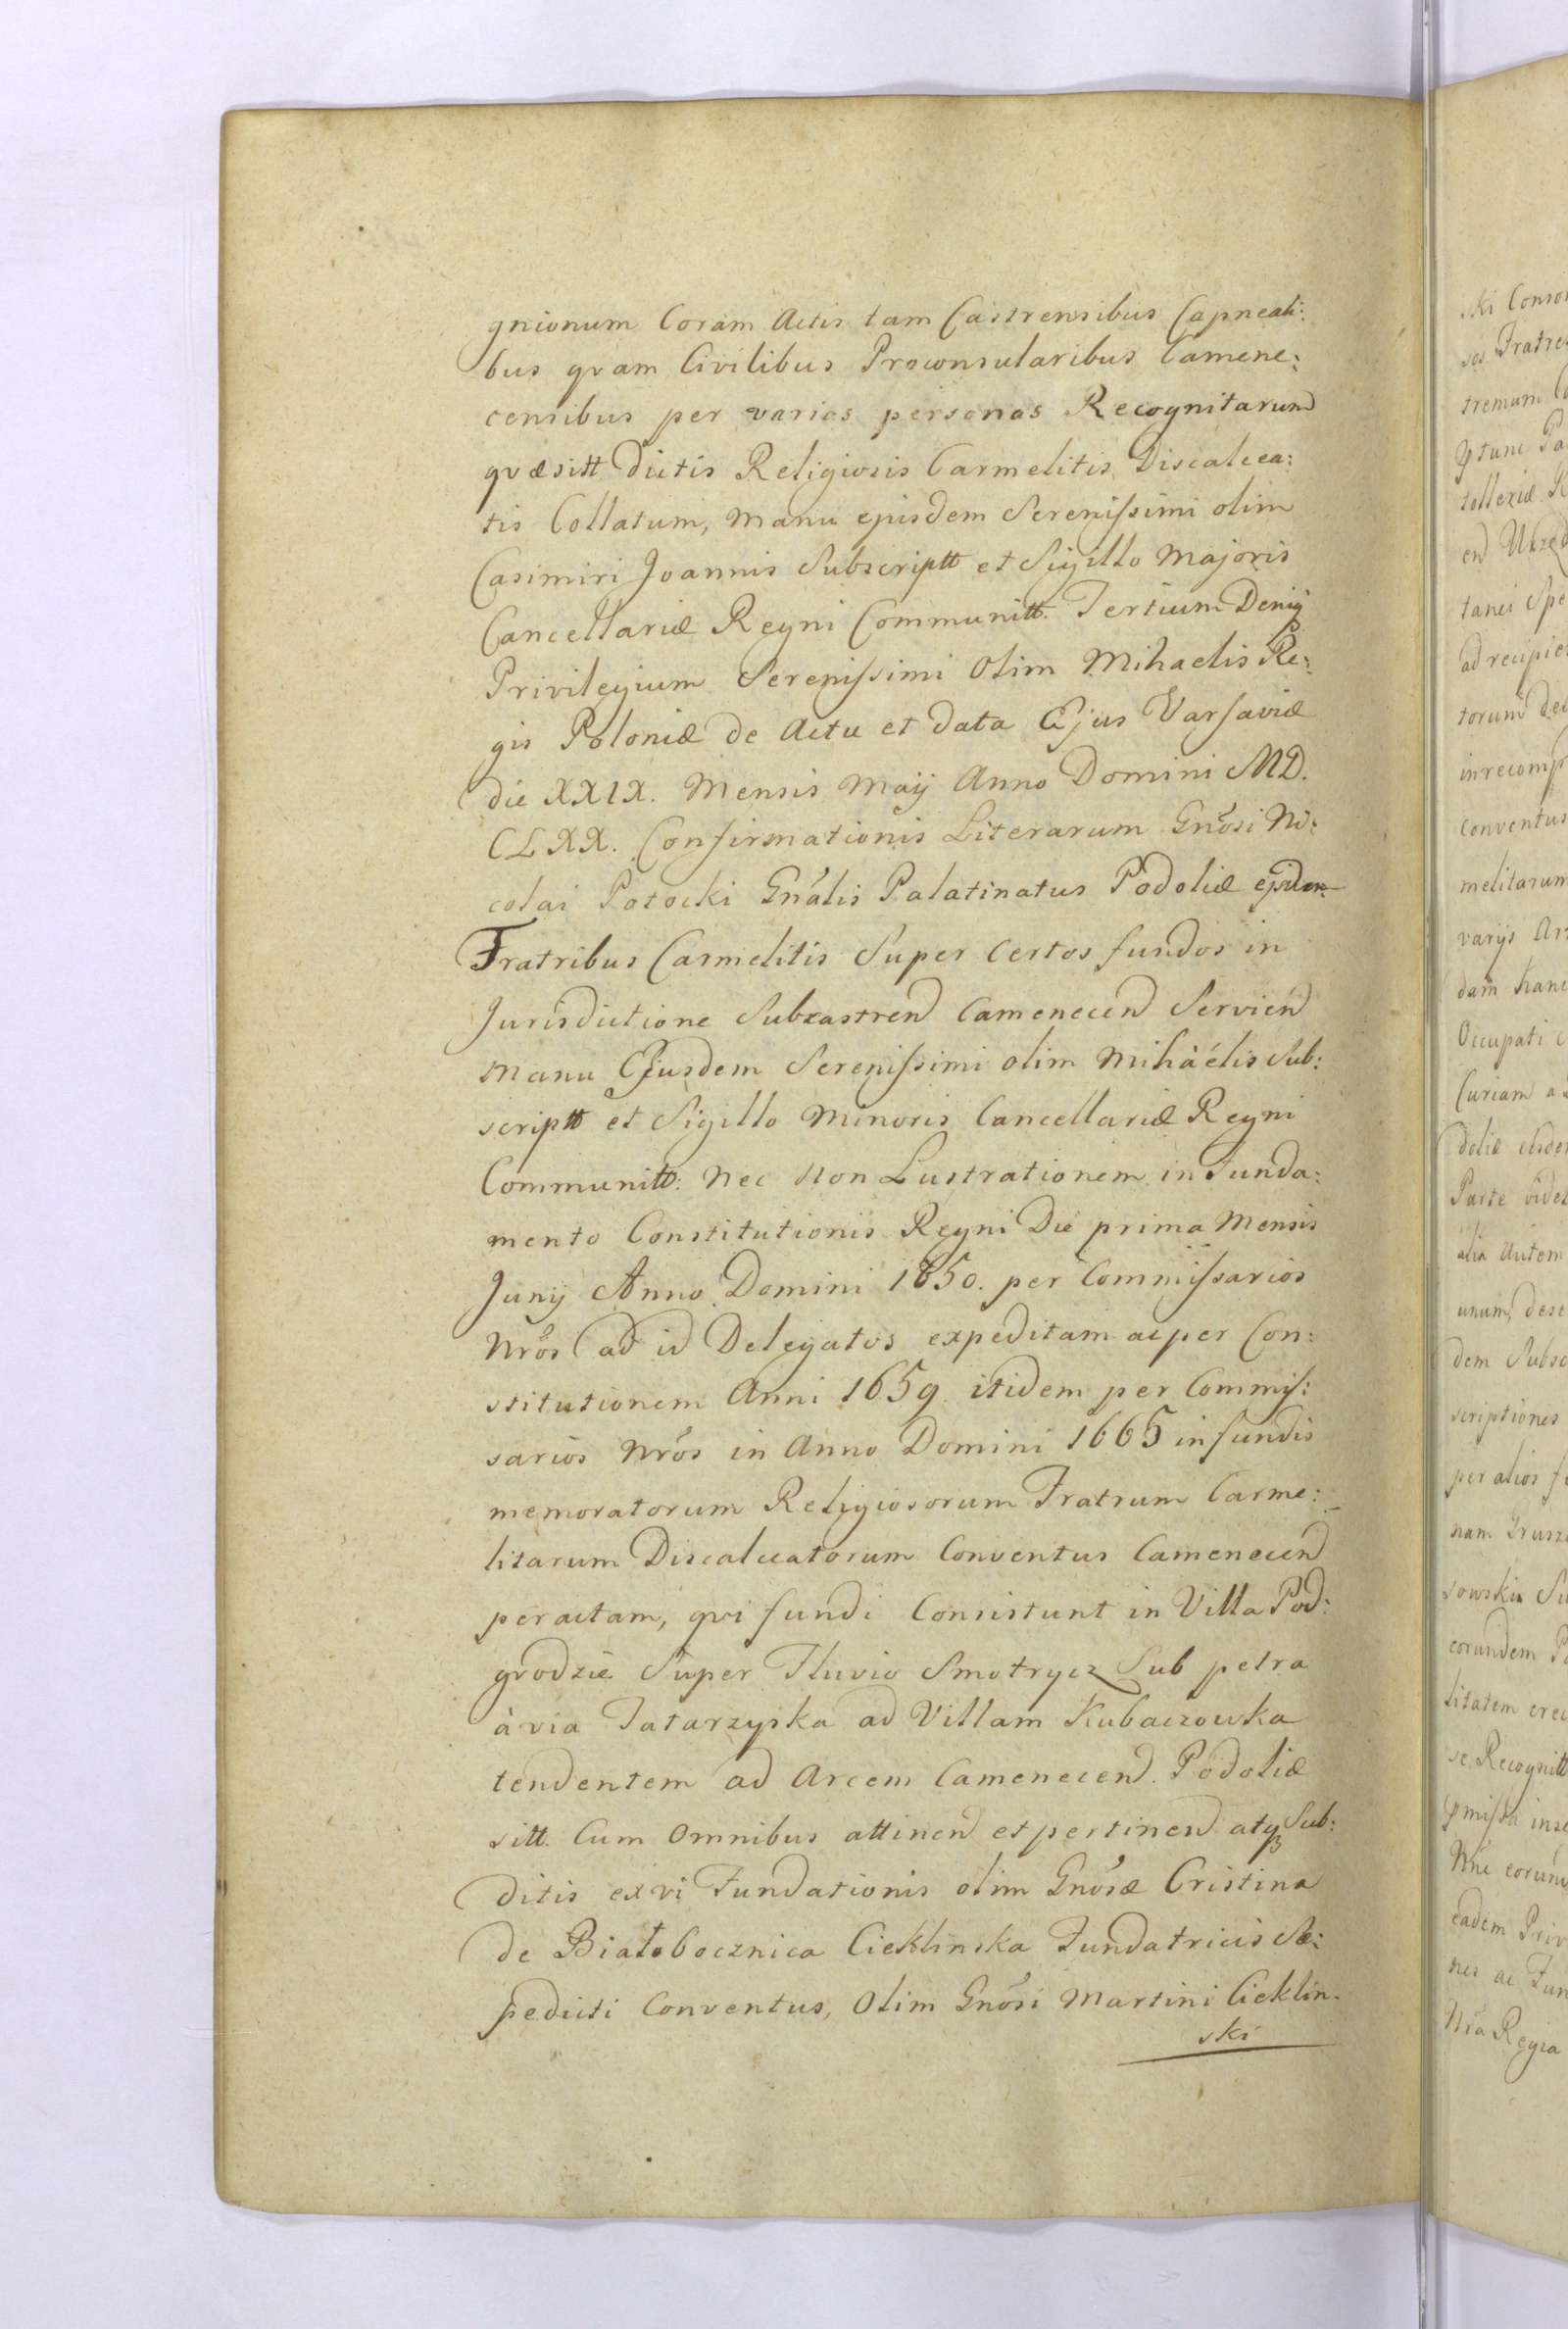 gnionum Coram Actis tam Castrensibus Capneali:
bus qvam Civilibus Proconsularibus Camene:
censibus per varias personas Recognitarum
qvæsitt dictis Religiosis Carmelitis Discalcea:
tis Collatum, manu ejusdem Serenissimi olim
Casimiri Joannis Subscriptt et Sigillo Majoris
Cancellariæ Regni Communitt. Tertium Deniq
Privilegium Serenissimi Olim Mihaelis Re:
gis Poloniæ de Actu et data Ejus Varsaviæ
die XXIX. Mensis Maij Anno Domini MD.
CLXX. Confirmationis Literarum Gnosi Ni:
colai Potocki Gnalis Palatinatus Podoliæ ejsdem
Fratribus Carmelitis Super certos fundos in
Jurisdictione Subcastren Camenecen Servien
manu Ejusdem Serenissimi olim Mihàélis Sub:
scriptt et Sigillo Minoris Cancellariæ Regni
Communitt: nec non Lustrationem in Funda:
mento Constitutionis Regni Die prima Mensis
Junij Anno Domini 1650. per Commissarios
Nros ad id Delegatos expeditam ac per Con:
stitutionem Anni 1659 itidem per Commis:
sarios Nros in Anno Domini 1665 in fundis
memoratorum Religiosorum Fratrum Carme:
litarum Discalceatorum Conventus Camenecen
peractam, qvi fundi Consistunt in Villa Pod:
grodzie Super Fluvio Smotrycz Sub petra
à via Tatarzyska ad Villam Kubaczowka
tendentem ad Arcem Camenecen. Podoliæ
sitt. Cum Omnibus attinen et pertinen atq Sub:
ditis ex vi Fundationis olim Gnosæ Cristina
de Białobocznica Cieklinska Fundatricis Sæ:
pedicti Conventus, Olim Gnosi Martini Cieklin-
ski
ski Conso
ses Fratre
tremum
ptunc Pa
tollexiæ R
tanei Spe
ad recipie
torum de
in recomp
Conventus
melitarum
varijs Ar
dam hanc
Occupati
Curiam a
doliæ eisde
Parte vide
alia autem
unum, dese
dem Subsc
scriptiones
per alios f
nam Grusz
sowskim Su
eorundem P
litatem erec
se Recognitt
pmissa inse
Nne eorum
eadem Priv
nes ac Fun
Nra Regia